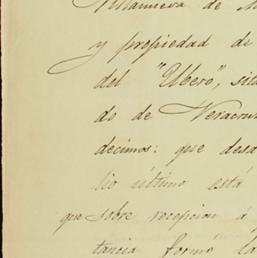 Villanueva de
y propiedad de
del "Ubero", situ
do de Veracru
decimos: que desd
lio último está
que sobre recepcion á
tancia formó la